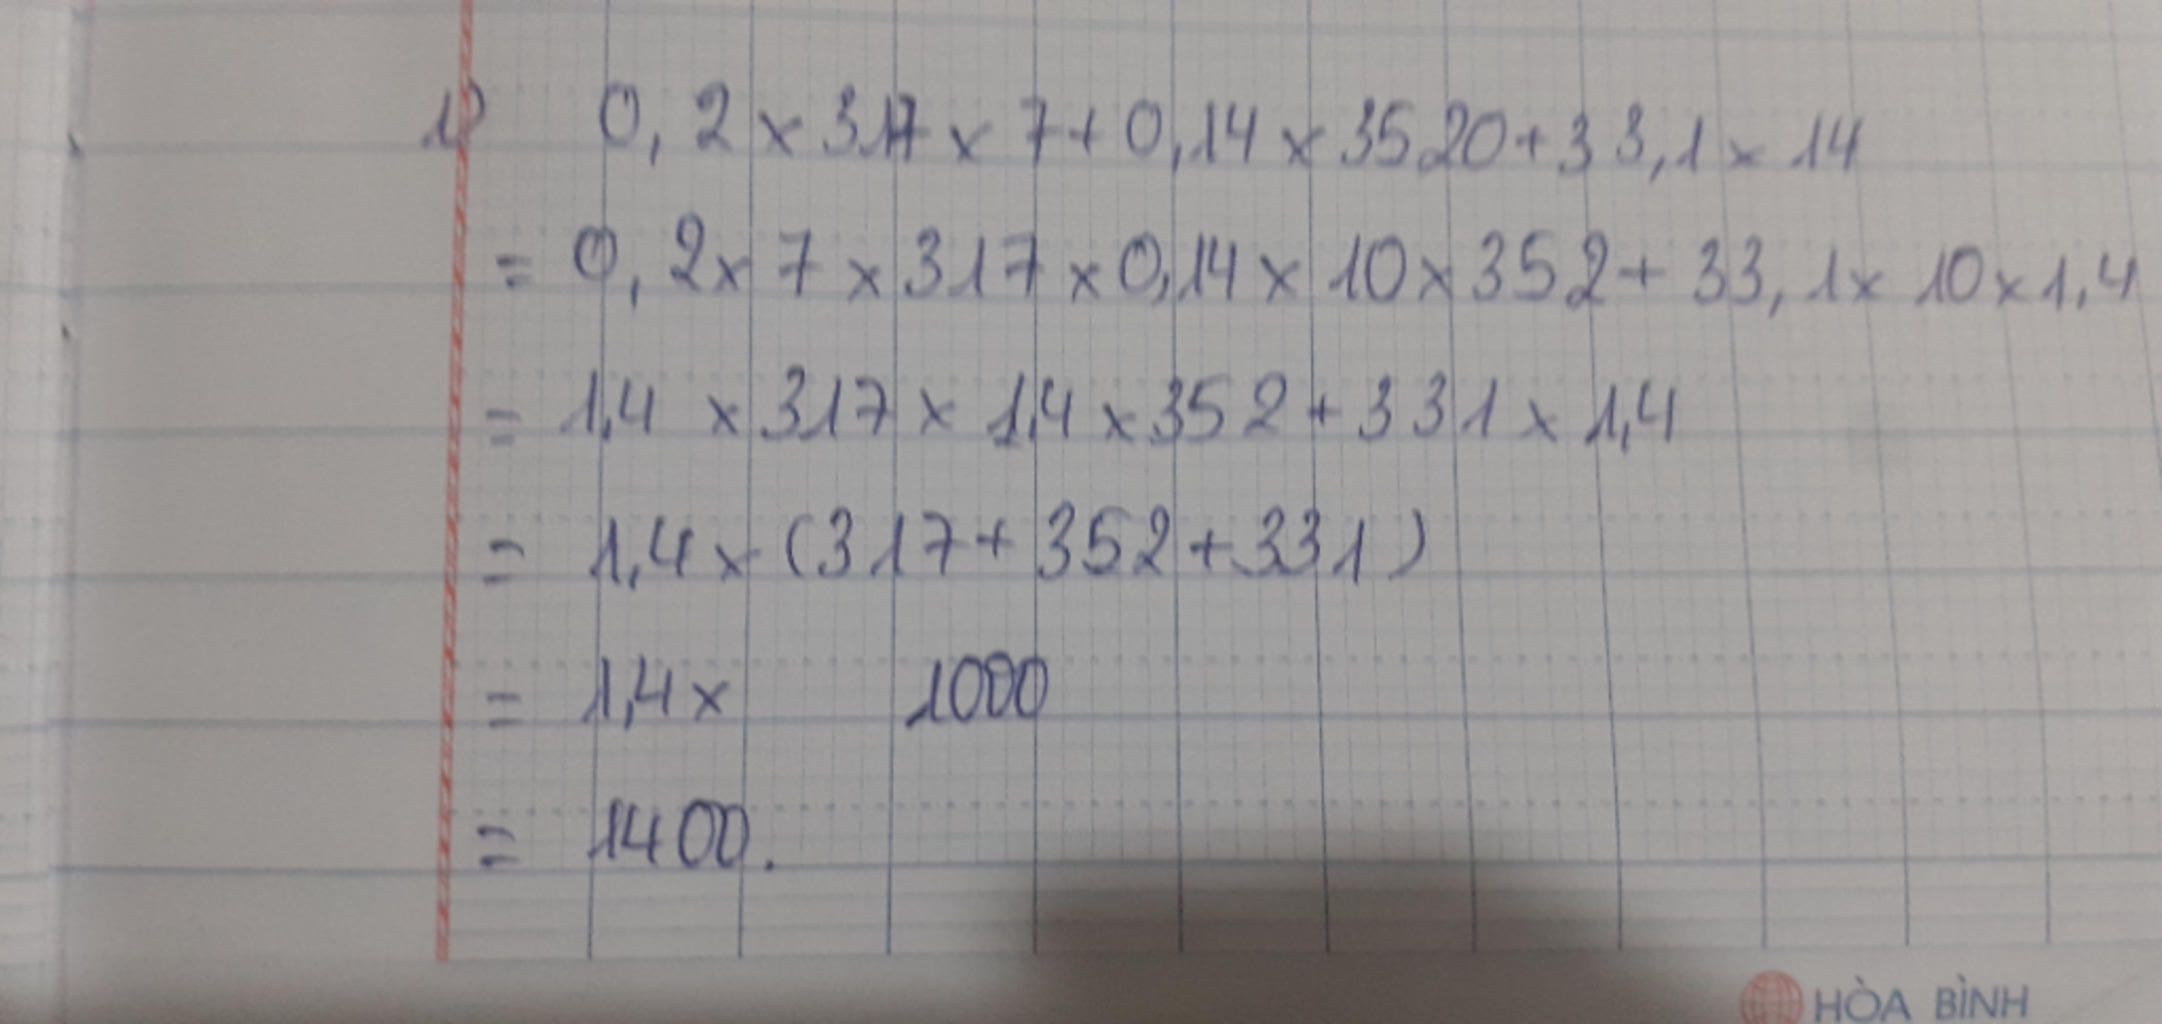 1) 0,2 x 317 x 7 + 0,14 x 3520 + 33,1 x 14
= 0,2 x 7 x 317 x 0,14 x 10 x 352 + 33,1 x 10 x 1,4
= 1,4 x 317 x 1,4 x 352 + 331 x 1,4
= 1,4 x (317 + 352 + 331)
= 1,4 x 1000
= 1400.
HÒA BÌNH